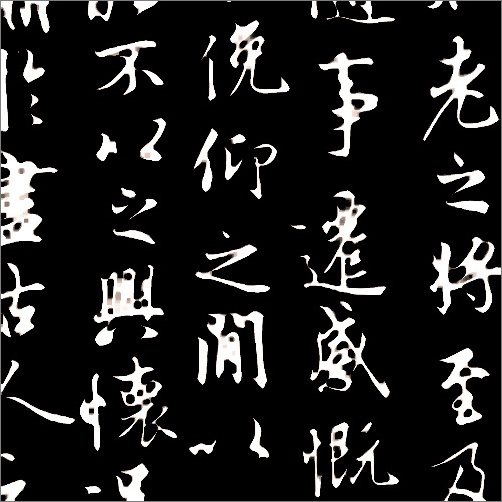 老之將至及
隨事遷感慨
俛仰之間以
不以之興懷況
於盡古人